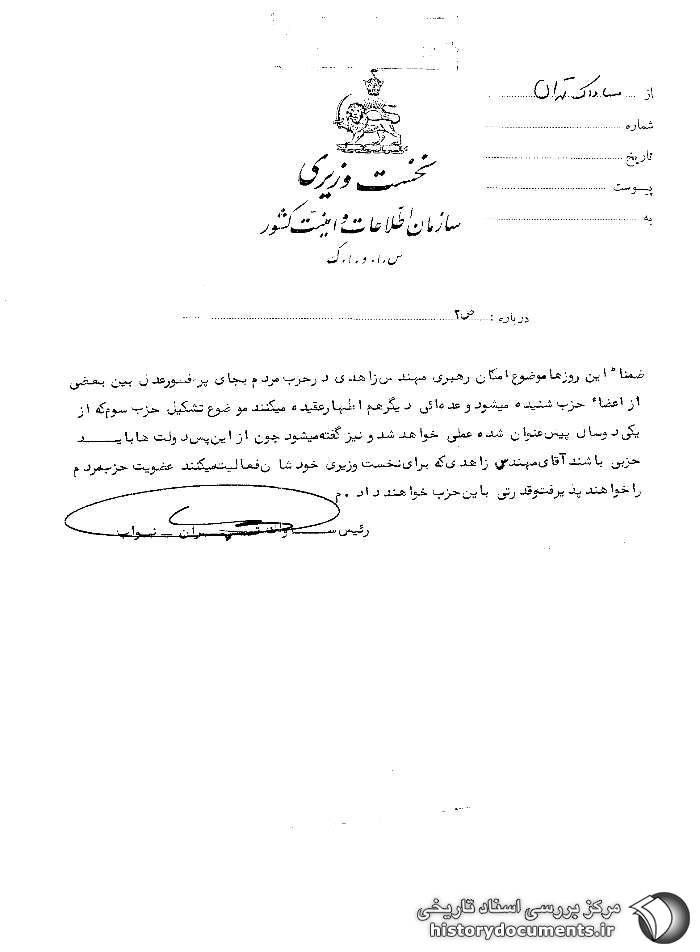 از ساواک تهران
شماره
تاریخ
پیوست
به
نخست وزیری
سازمان اطلاعات و امنیت کشور
س.ا.و.ا.ک
درباره : ص۲
ضمناً این روزها موضوع امکان رهبری مهندس زاهدی در حزب مردم بجای پرفسور عدل بین بعضی
از اعضاء حزب شنیده میشود و عده‌ائی دیگر هم اظهار عقیده میکنند موضوع تشکیل حزب سوم که از
یکی دو سال پیش عنوان شده عملی خواهد شد و نیز گفته میشود چون از این پس دولت ها باید
حزبی باشند آقای مهندس زاهدی که برای نخست وزیری خودشان فعالیت میکنند عضویت حزب مردم
را خواهند پذیرفت و قدرتی باین حزب خواهند داد . م
رئیس ساواک تهران – نواب
مرکز بررسی اسناد تاریخی
historydocuments.ir